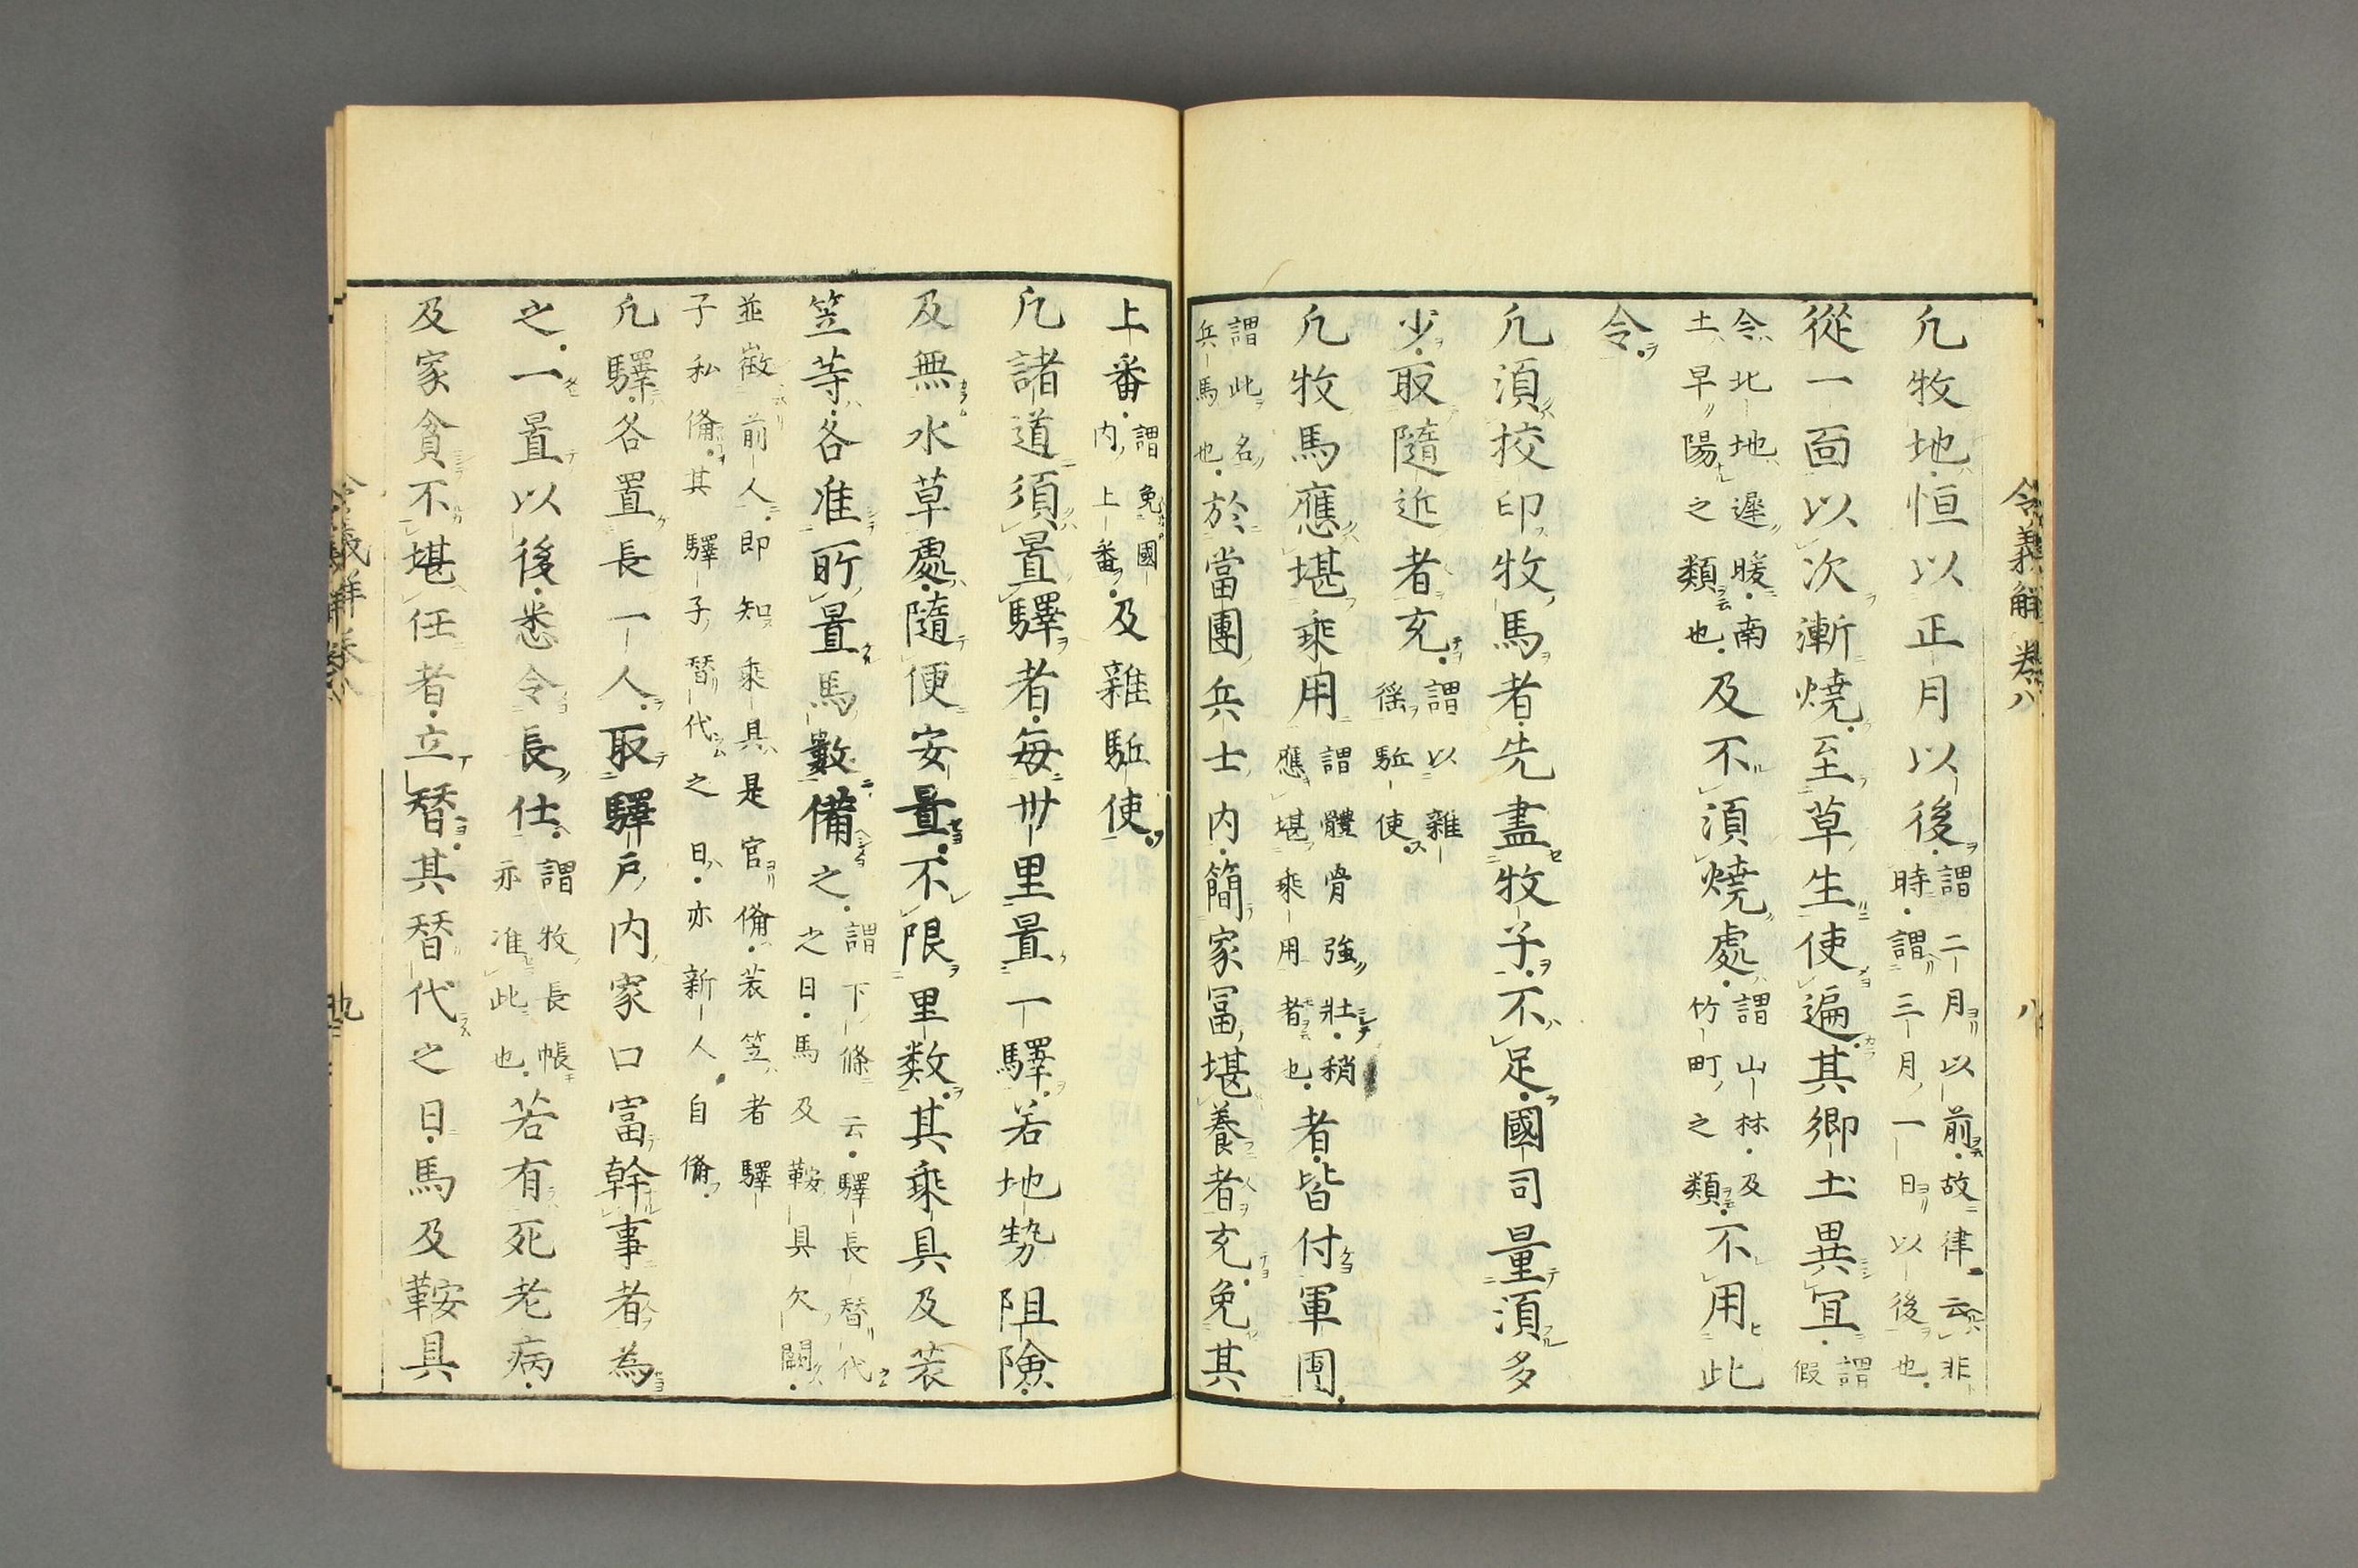 令義解卷八
八
凢牧地恒以正月以後謂二月以前故律云非
時謂三月一日以後也
從一靣以次漸燒至草生使遍其鄉土異冝謂
假
令北地遲暖南
土早陽之類也及不須燒處謂山林及
竹町之類不用此
令
凢須挍印牧馬者先盡牧子不足國司量須多
少取隨近者充謂以雜
徭駈使
凢牧馬應堪乘用謂體骨強壯稍
應堪乘用者也者皆付軍團
謂此名
兵馬也於當團兵士内簡家冨堪養者充免其
上番謂免國
内上番及雜駈使
凢諸道須置驛者每卅里置一驛若地勢阻險
及無水草處隨便安置不限里数其乘具及蓑
笠等各准所置馬數備之謂下條云驛長替代
之日馬及鞍具欠闕
並徵前人即知乘具是官俻蓑笠者驛
子私俻其驛子替代之日亦新人自俻
凢驛各置長一人取驛戶内家口富幹事者為
之一置以後悉令長仕謂牧長帳
亦准此也若有死老病
及家貧不堪任者立替其替代之日馬及鞍具